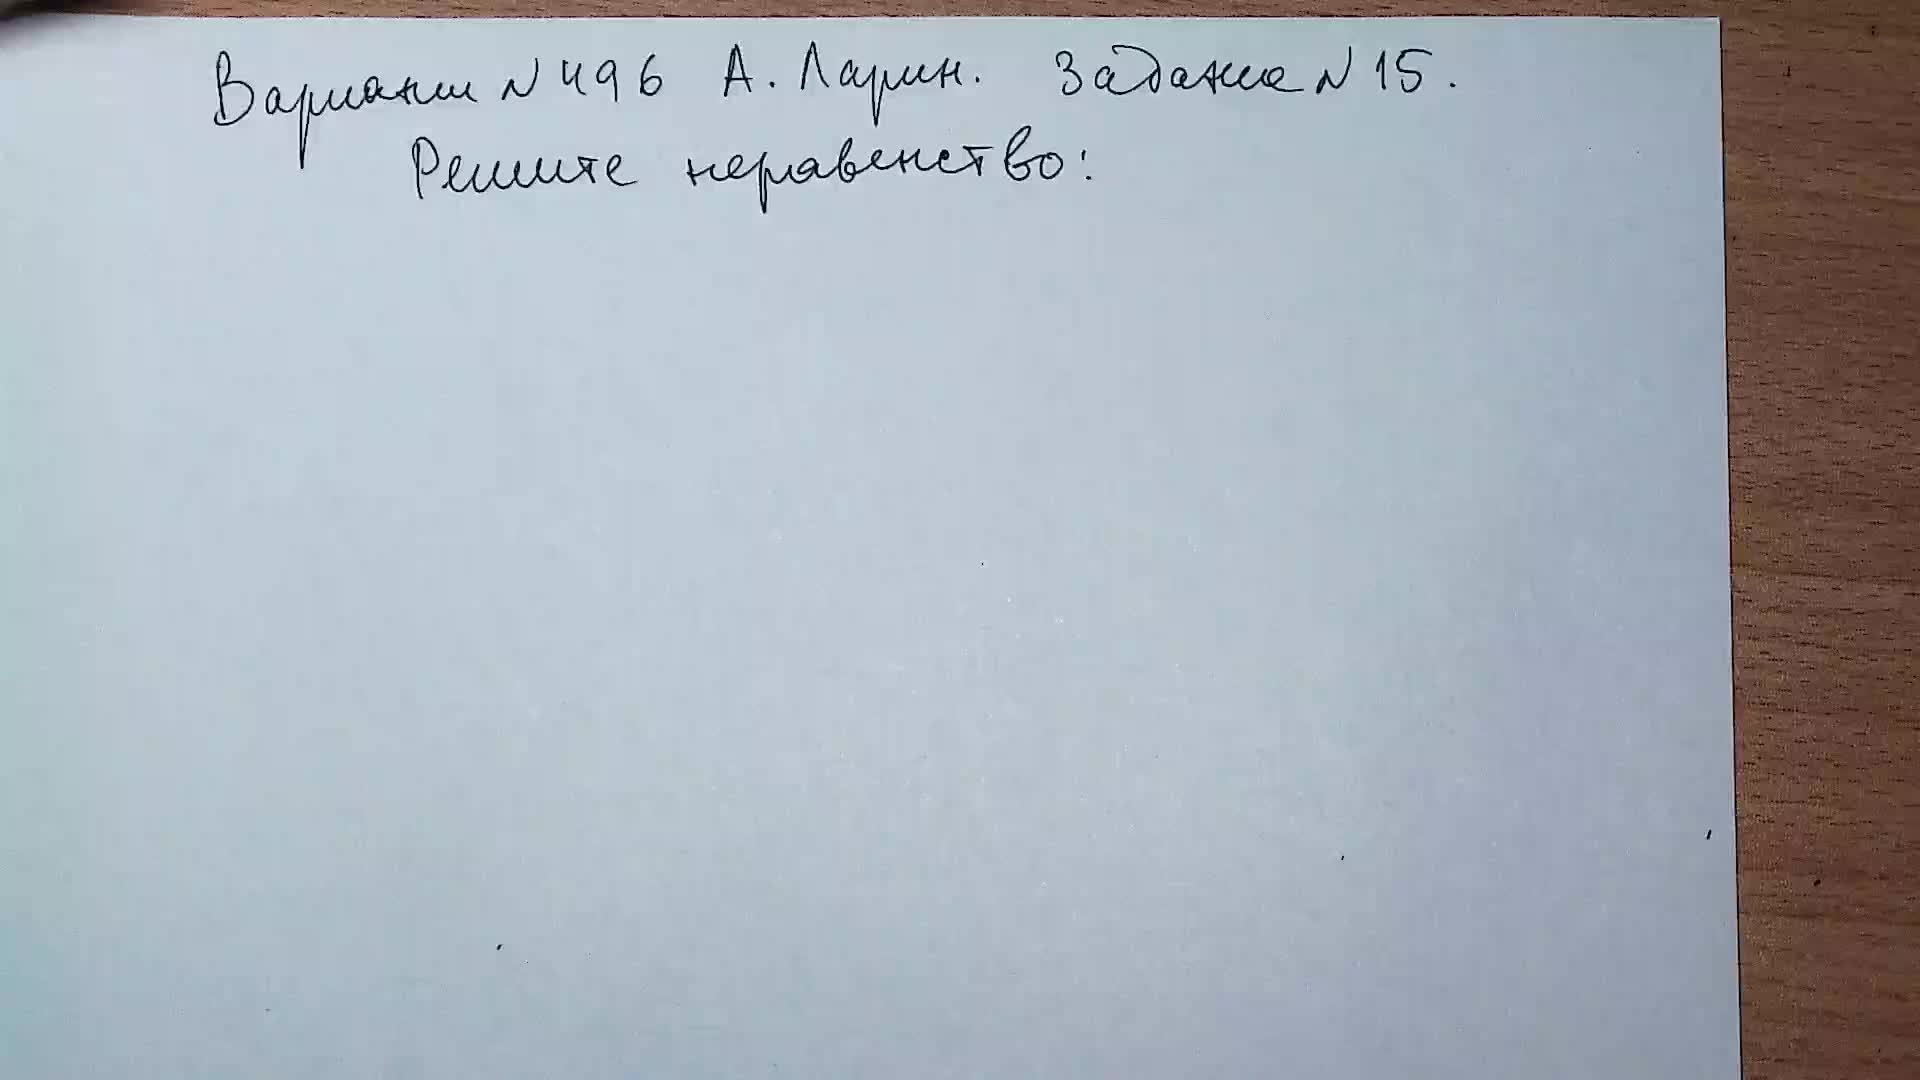 Вариант N 496 А. Ларин. Задание N 15.
Решите неравенство: